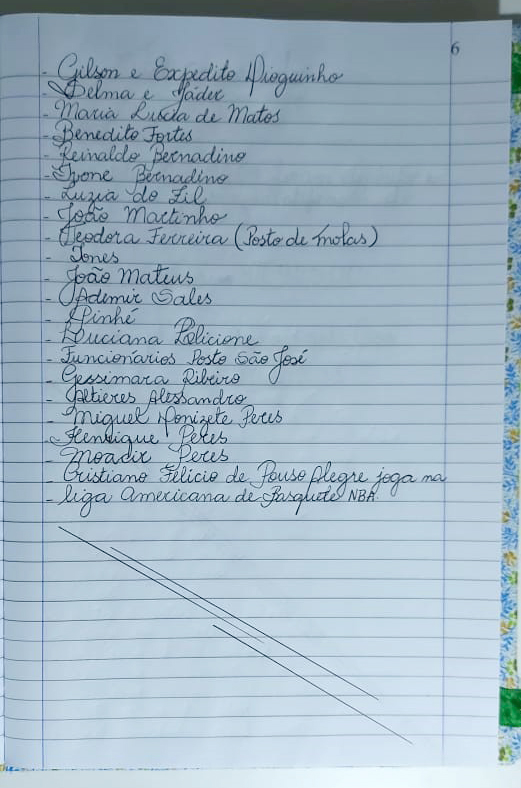 6
- Gilson e Expedito Dioguinho
- Delma e Jáder
- Maria Lúcia de Matos
- Benedito Fortes
- Reinaldo Bernadino
- Ivone Bernadino
- Luzia do Zil
- João Martinho
- Teodora Ferreira (Posto de molas)
- Jones
- João Mateus
- Ademir Sales
- Pinhé
- Luciana Policione
- Funcionários Posto São José
- Gessimara Ribeiro
- Altieres Alessandro
- Miguel Donizete Peres
- Henrique Peres
- Moacir Peres
- Cristiano Felício de Pouso Alegre joga na
- liga Americana de Basquete NBA.